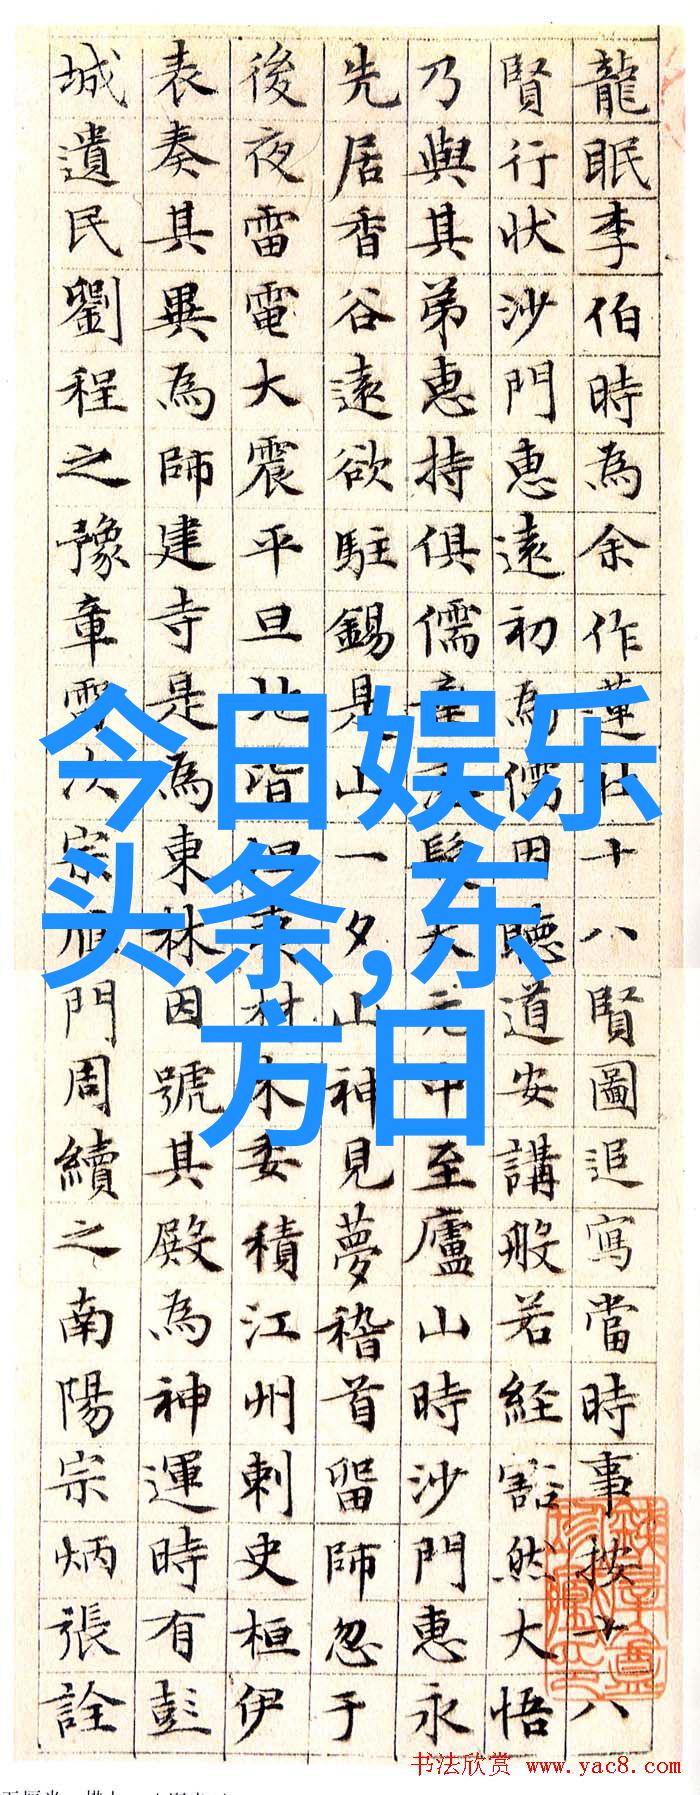 龍眠李伯時為余作蓮社十八賢圖追寫當時事按十八
賢行狀沙門惠遠初為儒因聽道安講般若經豁然大悟
乃與其弟惠持俱儒 元中至廬山時沙門惠永
先居香谷遠欲駐錫是山一夕山神見夢稽首留師忽于
後夜雷電大震平旦地皆 材木委積江州刺史桓伊
表奏其異為師建寺是為東林因號其殿為神運時有彭
城遺民劉程之豫章雷次宗雁門周續之南陽宗炳張詮
今日娱乐
头条,东
方日
书法欣赏 www.yac8.com